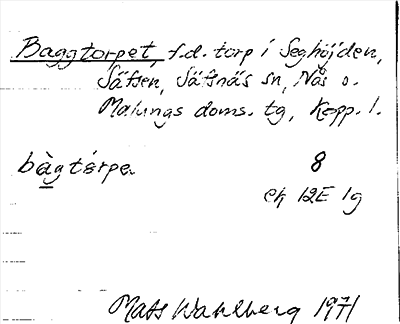 Baggtorpet, f.d. torp i Seghöjden,
Säfsen, Säfsnäs sn, Nås o.
Malungs doms. tg, Kopp. l.
bàgtórpe. 8
ek 12E 1g
Mats Wahlberg 1971